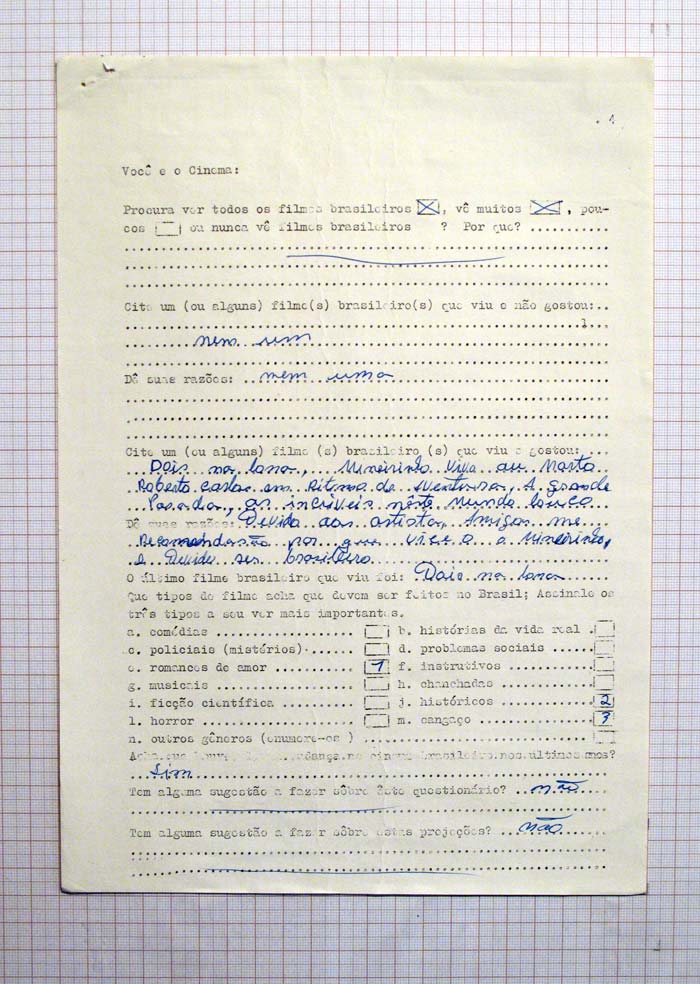 . 4
Você e o Cinema:
Procura ver todos os filmes brasileiros [X], vê muitos [X], pou-
cos [ ] ou nunca vê filmes brasileiros ? Por que? ...........
Cite um (ou alguns) filme(s) brasileiro(s) que viu e não gostou:..
nem um
Dê suas razões: .. nem uma
Cite um (ou alguns) filme (s) brasileiro (s) que viu e gostou: ...
Dois na lona, Mineirinho Vivo ou Morto
Roberto Carlos em Ritimo de Aventuras, A grande
os incriveis nêste Mundo louco
Dê suas razões: Devido aos artistas, Amigos me
por que o Mineirinho,
e Devido ser brasileiro
O último filme brasileiro que viu foi: Dois na lona
Que tipos de filme acha que devem ser feitos no Brasil; Assinale os
três tipos a seu ver mais importantes.
a. comédias ................... [ ] b. histórias da vida real . [ ]
c. policiais (mistérios)....... [ ] d. problemas sociais ...... [ ]
e. romances de amor ........... [1] f. instrutivos ............ [ ]
g. musicais ................... [ ] h. chanchadas ............. [ ]
i. ficção científica .......... [ ] j. históricos ............. [2]
l. horror ..................... [ ] m. cangaço ................ [3]
n. outros gêneros (enumere-os ) ............................ [ ]
Acha que houve mudança no cinema brasileiro nos últimos anos?
Sim
Tem alguma sugestão a fazer sôbre êste questionário? .. não
Tem alguma sugestão a fazer sôbre estas projeções? ... não